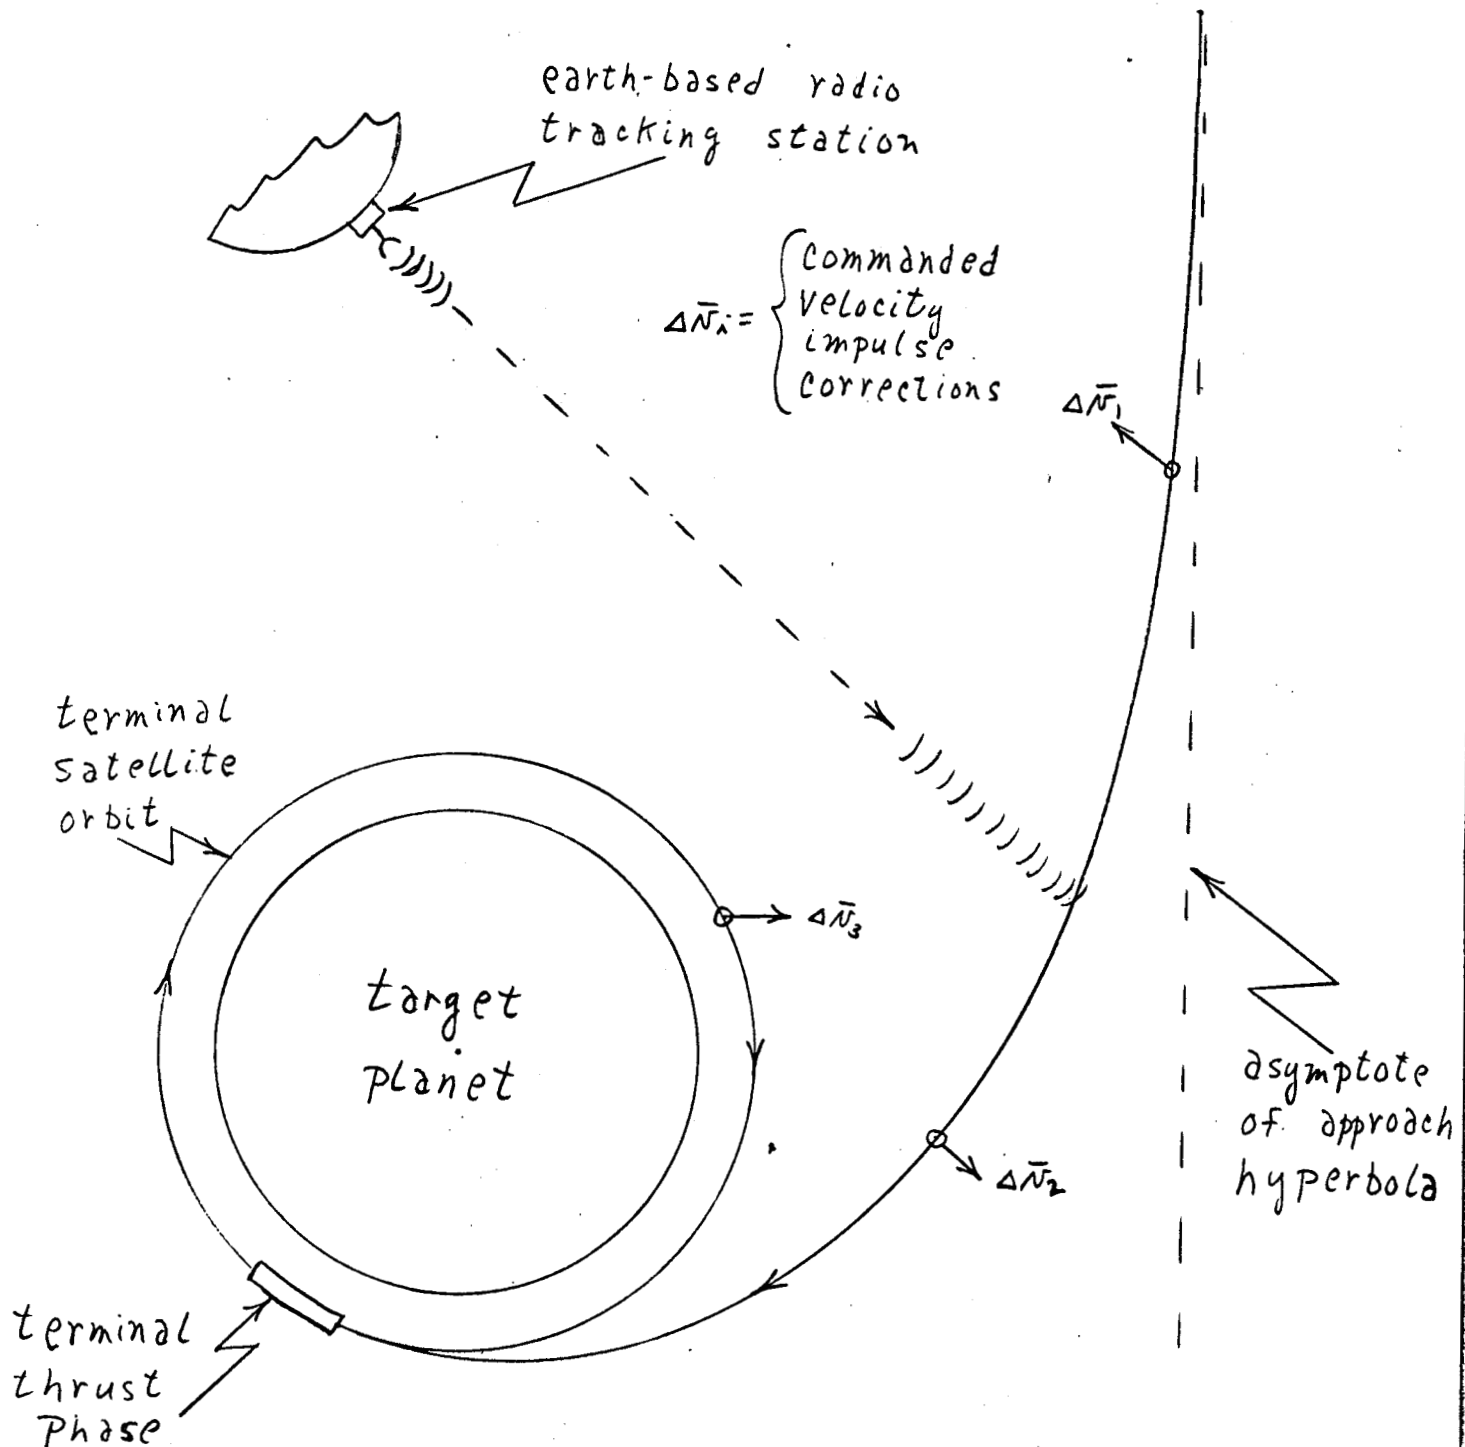 earth-based radio
tracking station
Δv̄ᵢ = { commanded
velocity
impulse
corrections
Δv̄₁
terminal
satellite
orbit
Δv̄₃
target
planet
asymptote
of approach
hyperbola
Δv̄₂
terminal
thrust
phase